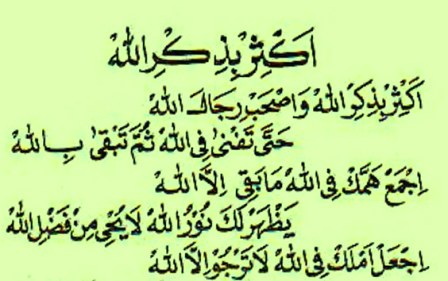 اَكْثِرْ بِذِكْرِ اللهْ
اَكْثِرْ بِذِكْرِ اللهْ وَاصْحَبْ رِجَاكَ اللهْ
حَتَّى تَفْنٰى فِى اللهْ ثُمَّ تَبْقٰى بِاللهْ
اِجْمَعْ هَمَّكْ فِى اللهْ مَا بَقِى اِلاَّ اللهْ
يَظْهَرْ لَكَ نُوْرُ اللهْ لَا يَحْجِى مِنْ فَضْلِ اللهْ
اِجْعَلْ اَمَلَكْ فِى اللهْ لَا تَرْجُوْ اِلاَّ اللهْ